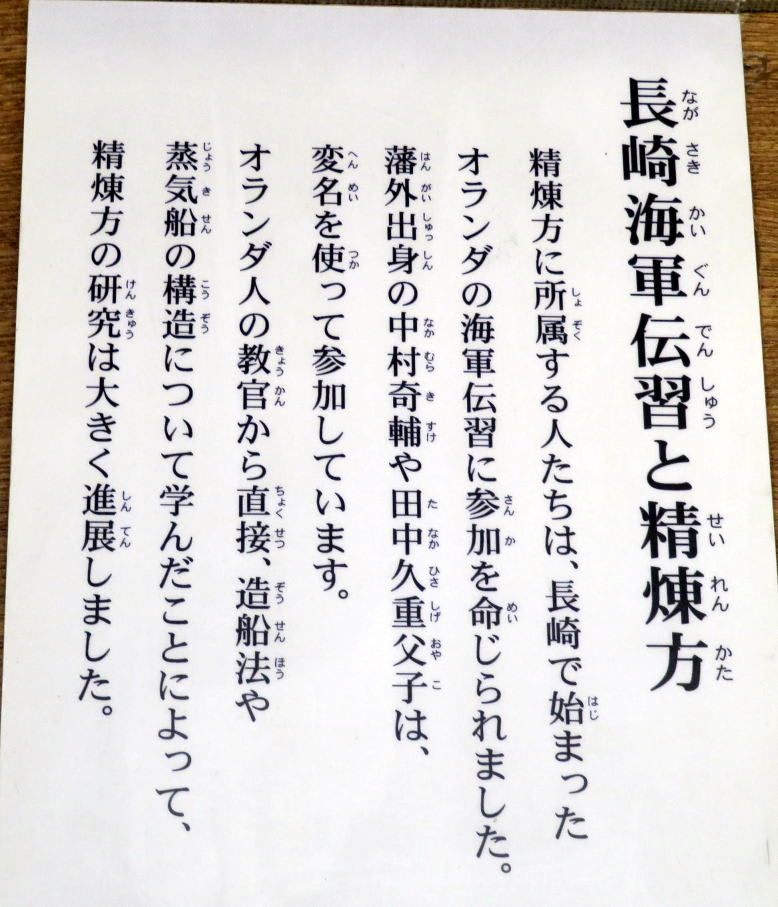 長崎海軍伝習と精煉方
精煉方に所属する人たちは、長崎で始まった
オランダの海軍伝習に参加を命じられました。
藩外出身の中村奇輔や田中久重父子は、
変名を使って参加しています。
オランダ人の教官から直接、造船法や
蒸気船の構造について学んだことによって、
精煉方の研究は大きく進展しました。